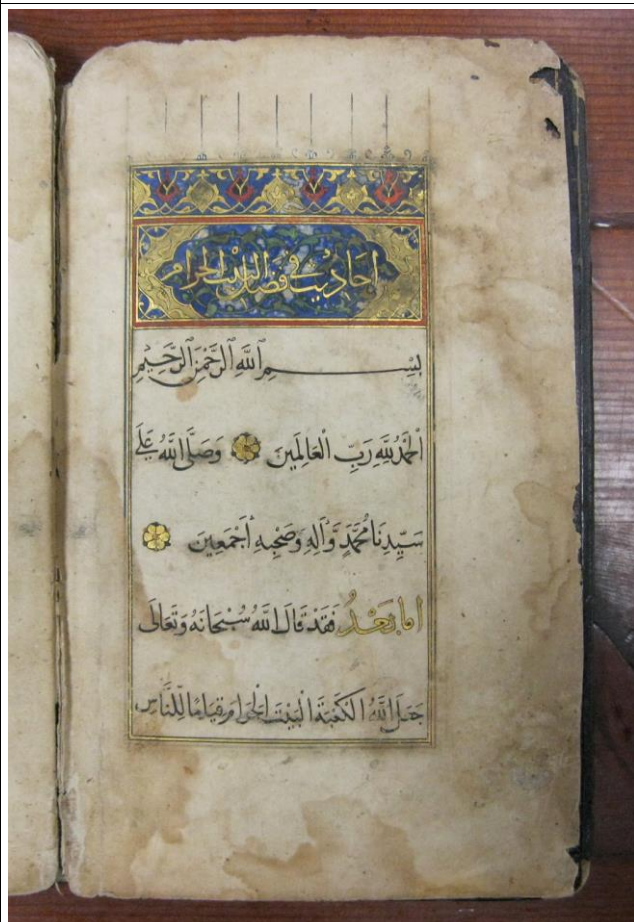 احاديث في فضائل البيت الحرام
بِسْمِ ٱللَّهِ ٱلرَّحْمٰنِ ٱلرَّحِيمِ
اَلْحَمْدُ لِلَّهِ رَبِّ الْعَالَمِينَ وَصَلَّى اللَّهُ عَلَى
سَيِّدِنَا مُحَمَّدٍ وَّآلِهِ وَصَحْبِهِ أَجْمَعِينَ
اما بَعْدُ فَقَدْ قَالَ اللَّهُ سُبْحَانَهُ وَتَعَالَى
جَعَلَ اللَّهُ الْكَعْبَةَ الْبَيْتَ الْحَرَامَ قِيَامًا لِّلنَّاسِ،